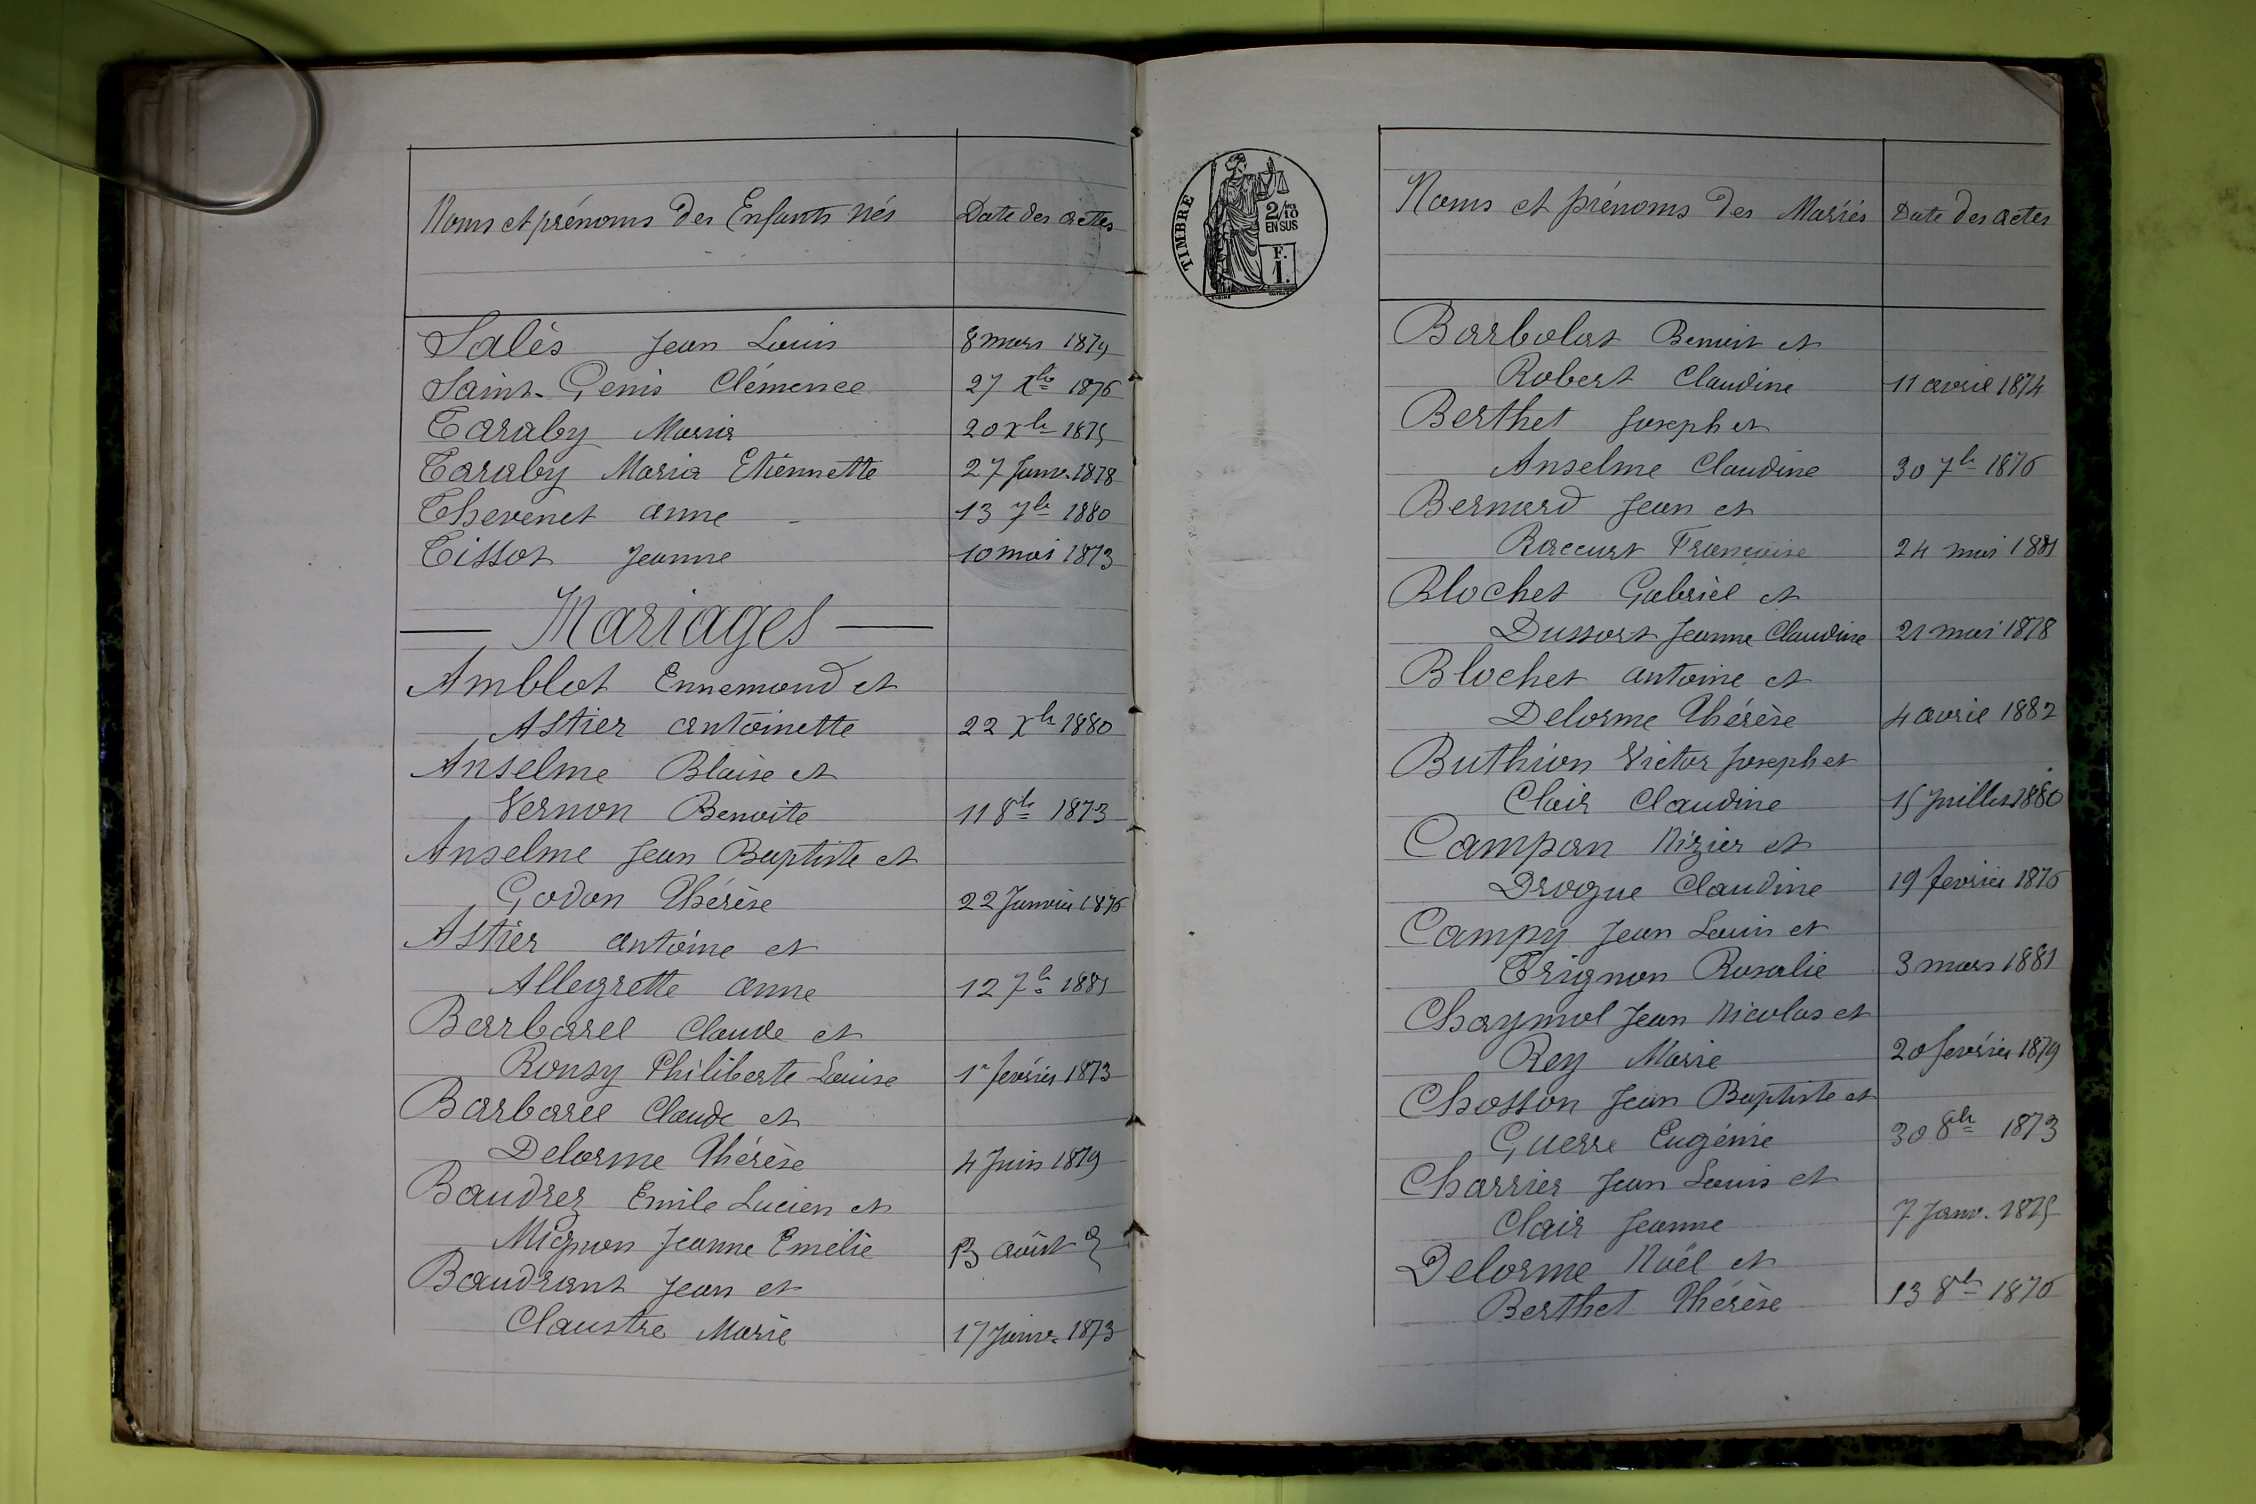 Noms et prénoms des Enfants nés Date des actes
Salès Jean Louis 8 mars 1879
Saint-Genis Clémence 27 Xbre 1876
Taraby Maria 20 Xbre 1875
Taraby Maria Etiennette 27 Janv. 1878
Thevenet Anne 13 7bre 1880
Tissot Jeanne 10 mai 1873
Mariages
Amblot Ennemond et
Astier Antoinette 22 Xbre 1880
Anselme Blaise et
Vernon Benoite 11 8bre 1873
Anselme Jean Baptiste et
Godon Thérèse 22 Janvier 1876
Astier Antoine et
Allegrette Anne 12 7bre 1881
Barbaret Claude et
Ronzy Philiberte Louise 1er février 1873
Barbaret Claude et
Delorme Thérèse 4 Juin 1879
Baudrer Emile Lucien et
Mignon Jeanne Emélie 13 août
Baudrant Jean et
Claustre Marie 17 Janv. 1873
TIMBRE
2/10
EN SUS
F.
1.
Noms et prénoms des Mariés Date des actes
Barbolat Benoit et
Robert Claudine 11 avril 1874
Berthet Joseph et
Anselme Claudine 30 7bre 1876
Bernard Jean et
Raccurt Françoise 24 mai 1881
Blochet Gabriel et
Dussort Jeanne Claudine 21 mai 1878
Blochet Antoine et
Delorme Thérèse 4 avril 1882
Buthion Victor Joseph et
Clair Claudine 15 Juillet 1880
Campan Nizier et
Drogue Claudine 19 fevrier 1876
Campy Jean Louis et
Trignon Rosalie 3 mars 1881
Chaymol Jean Nicolas et
Rey Marie 20 fevrier 1879
Chosson Jean Baptiste et
Guerre Eugénie 30 8bre 1873
Charrier Jean Louis et
Clair Jeanne 7 Janv. 1875
Delorme Noël et
Berthet Thérèse 13 8bre 1876